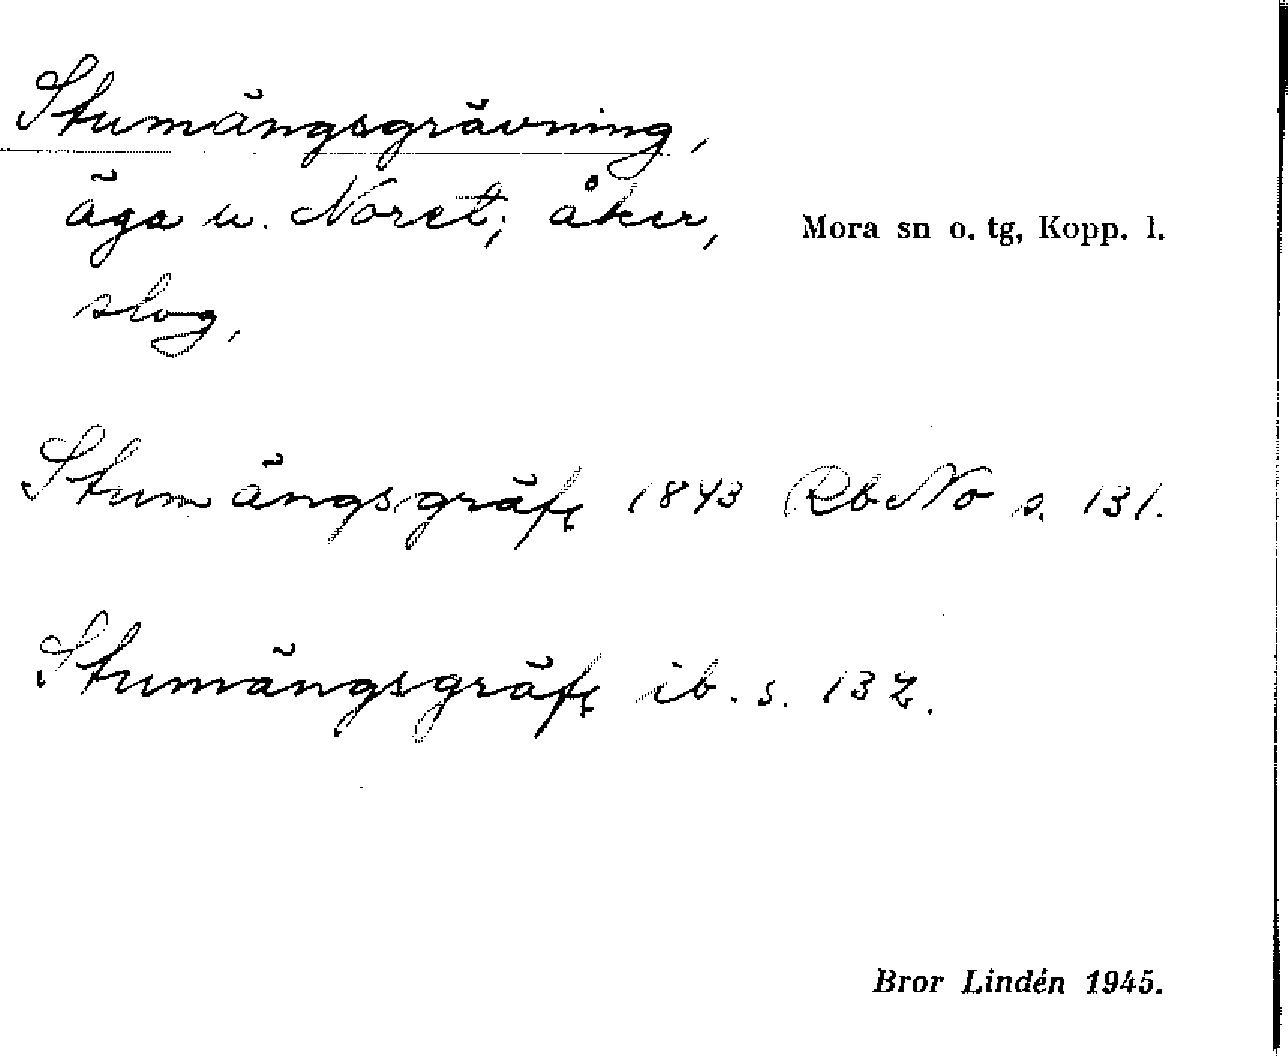 Stumängsgrävning,
äga u. Noret; åker,
Mora sn o. tg, Kopp. l.
slog,
Stum ängsgräfn 1843 Rb No s. 131.
Stumängsgräfn ib. s. 132.
Bror Lindén 1945.